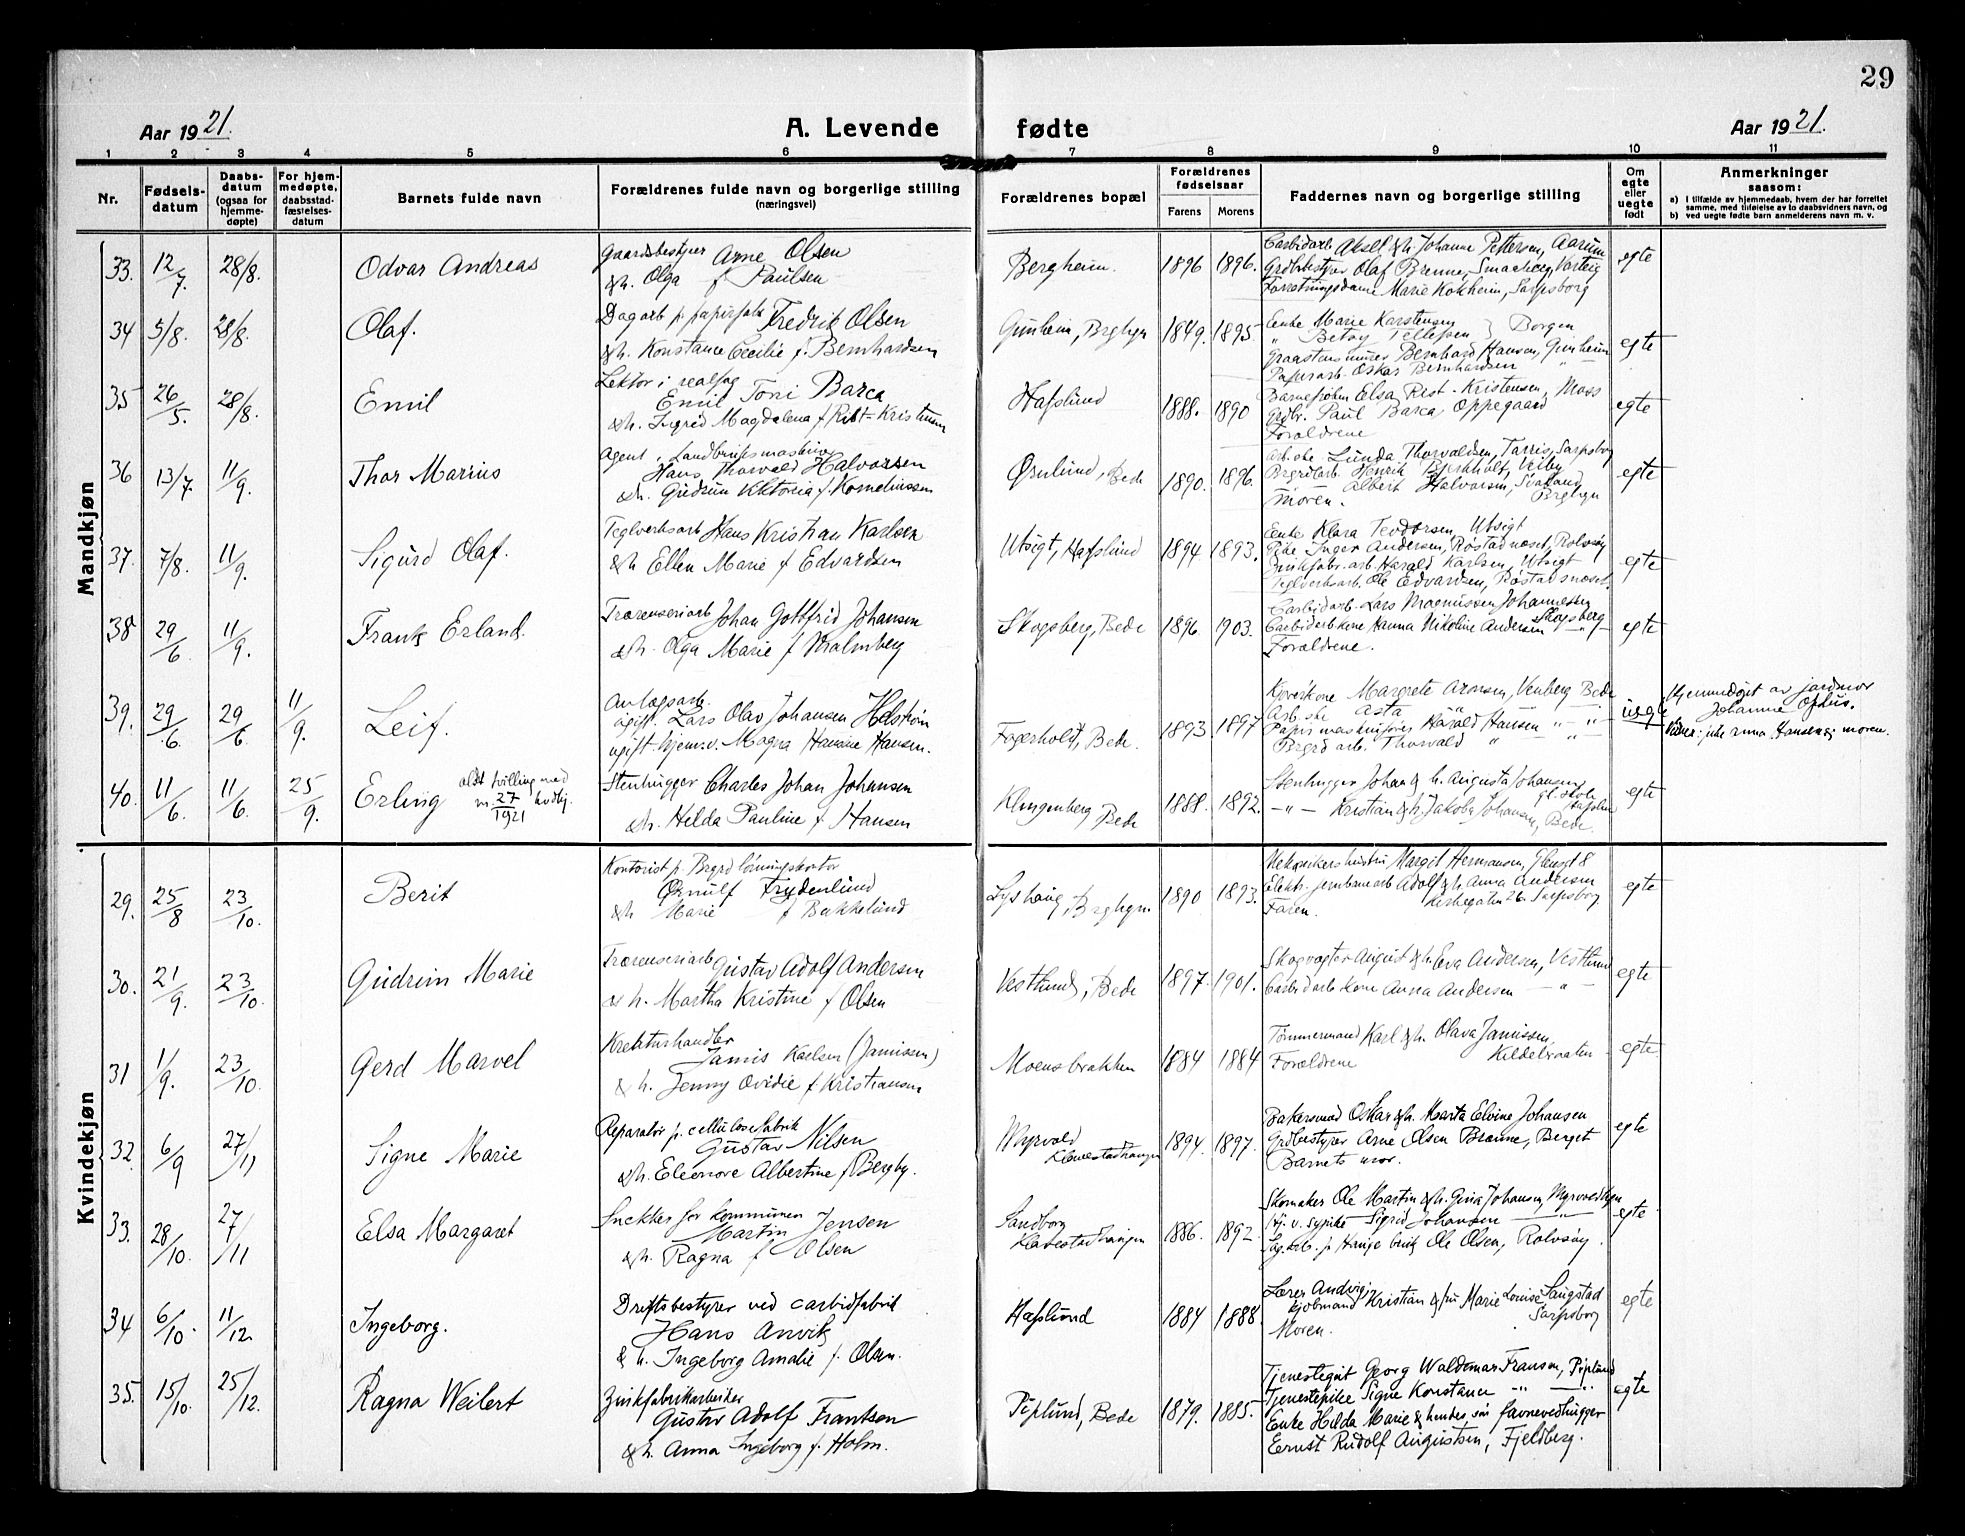 29
Aar 1921.
A. Levende fødte
Aar 1921.
1 2 3 4 5 6 7 8 9 10 11
Nr.
Fødsels-
datum
Daabs-
datum
(ogsaa for
hjemme-
døpte)
For hjem-
medøpte,
daabsstad-
fæstelses-
datum
Barnets fulde navn
Forældrenes fulde navn og borgerlige stilling
(næringsvei)
Forældrenes bopæl
Forældrenes
fødselsaar
Farens Morens
Faddernes navn og borgerlige stilling
Om
egte
eller
uegte
født
Anmerkninger
saasom:
a) I tilfælde av hjemmedaab, hvem der har forrettet
samme, med tilføielse av to daabsvidners navn, og
b) ved uegte fødte barn anmelderens navn m. v.
Mandkjøn
33. 12/7. 28/8. Odvar Andreas
Gaardsbestyrer Arne Olsen
& h. Olga f. Paulsen
Bergheim. 1896 1896.
Carbidarb. Aksel & h. Johanne Pettersen, Aarum
Grdbrbestyrer Olaf Brenne, Varteig
Forretningsdame Marie Sarpsborg
egte
34 5/8. 28/8. Olaf.
Dagarb. p. papirfabr. Fredrik Olsen
& h. Konstance Cecilie f. Bernhardsen
Gunheim, Brghgn 1849. 1895
Enke Marie Karstensen
" Betsy Tellefsen } Borgen
Bernhard Hansen, Gunheim
Papirarb. Oskar Bernhardsen "
egte
35 26/5. 28/8. Emil
Lektor i realfag
Emil Toni Barca
& h. Ingrid Magdalena f. Rist-Kristensen
Hafslund 1888. 1890
Elsa Rist-Kristensen, Moss
Grdbr. Paul Barca, Oppegaard
Forældrene
egte
36 13/7. 11/9. Thor Marius
Agent i Landbruksmaskiner
Hans Thorvald Halvorsen
& h. Gudrun Viktoria f. Korneliussen
Ørnlund, Bede 1890. 1896.
Arb. ske Lunda Thorvaldsen, Sarpsborg
Brgrdarb. Henrik Bjerkholt, Velby
" Albert Halvorsen,
Moren. Brghgn
egte
37. 7/8. 11/9. Sigurd Olaf.
Teglverksarb Hans Kristian Karlsen
& h. Ellen Marie f. Edvardsen
Utsigt, Hafslund 1894 1893.
Enke Klara Teodorsen, Utsigt
Pike Inger Andersen, Røstadnæset, Rolvsøy
Zinkfabr. arb. Harald Karlsen, Utsigt
Teglverksarb. Ole Edvardsen, Røstadsnæset
egte
38 29/6. 11/9. Frank Erland.
Træsenseriarb Johan Gottfrid Johansen
& h. Olga Marie f. Malmberg
Skogsberg, Bede 1896 1903.
Carbidarb. Lars Magnussen Johannesberg
Carbidarb kone Hanna Nikoline Andersen Skogsberg
Forældrene.
egte
39. 29/6. 29/6 11/9. Leif.
Anlægsarb.
ugift. Lars Olav Johansen Helström
ugift hjemv. Magna Hansine Hansen.
Fagerholt, Bede. 1893 1897
Margrete Aronsen, Venberg Bede
Arb. ske Asta " " "
Papirmaskinfører Harald Hansen " "
Brgrd arb. Thorvald " " "
uegte
Hjemmedøpt av jordmor
Johanne Ophus.
Vidner: pike Anna Hansen og moren.
40. 11/6. 11/6. 25/9. Erling
ældst tvilling med
nr. 27 kvdkj.
1921
Stenhugger Charles Johan Johansen
& h. Hilda Pauline f. Hansen
Klingenberg, Bede 1888. 1892.
Stenhugger Johan & h. Augusta Johansen
gl. skole Hafslun
—"— Kristian & h. Jakobe Johansen, Bede.
egte
Kvindekjøn
29. 25/8 23/10. Berit
Kontorist p. Brgrd lønningskontor
Ørnulf Frydenlund
& h Marie f Bakkelund
Lyshaug, Brghgn. 1890 1893.
Mekanikershustru Margit Hermansen, Glengt 8
Elektr. jernbanearb Adolf & h. Anna Andersen
Faren. Kirkegaten 26. Sarpsborg.
egte
30. 21/9. 23/10. Gudrun Marie
Træsenseriarb Gustav Adolf Andersen
& h. Martha Kristine f Olsen
Vestlund, Bede 1897. 1901.
Skogvogter August & h. Eva Andersen, Vestlund
Carbidarb kone Anna Andersen —"—
egte
31 1/9. 23/10. Gerd Marvel
Kreaturhandler
Jamis Karlsen (Jamissen)
& h. Jenny Ovidie f Kristiansen
Moensbrakken 1884 1884
Tømmermand Karl & h. Olava Jamissen,
Forældrene Kildebraaten
egte
32. 6/9 27/11 Signe Marie
Reparatør p. cellulosefabrik
Gustav Nilsen
& h. Eleonore Albertine f. Bergby.
Myrvold
Klavestadhaugen 1894. 1897.
Bakersvend Oskar & h. Marta Elvine Johansen
Grdbestyrer Arne Olsen Brenne, Berget
Barnets mor.
egte
33. 28/10. 27/11 Elsa Margaret
Snekker for kommunen
Martin Jensen
& h. Ragna f Olsen
Sandborg
Klavestadhaugen 1886. 1892.
Skomaker Ole Martin & h. Gina Johansen, Myrvedhgn
Hj. v. sypike Sigrid Johansen —"—
Sag.arb. p. Hauge bruk Ole Olsen, Rolvsøy.
egte
34 6/10. 11/12. Ingeborg.
Driftsbestyrer ved carbidfabrik
Hans Anvik
& h. Ingeborg Amalie f. Olsen.
Hafslund 1884 1888.
Lærer Andvig,
kjøbmand Kristian & fru Marie Louise Langstad
Moren. Sarpsborg
egte
35. 15/10. 25/12. Ragna Weilert
Zinkfabrikkarbeider
Gustav Adolf Frantsen
& h. Anna Ingeborg f. Holm.
Piplund, Bede 1879. 1885.
Tjenestegut Georg Waldemar Fransen, Piplund
Tjenestepike Signe Konstance " — "
Enke Hilda Marie & hendes søn favnevedhugger
Ernst Rudolf Augustsen, Fjeldberg.
egte